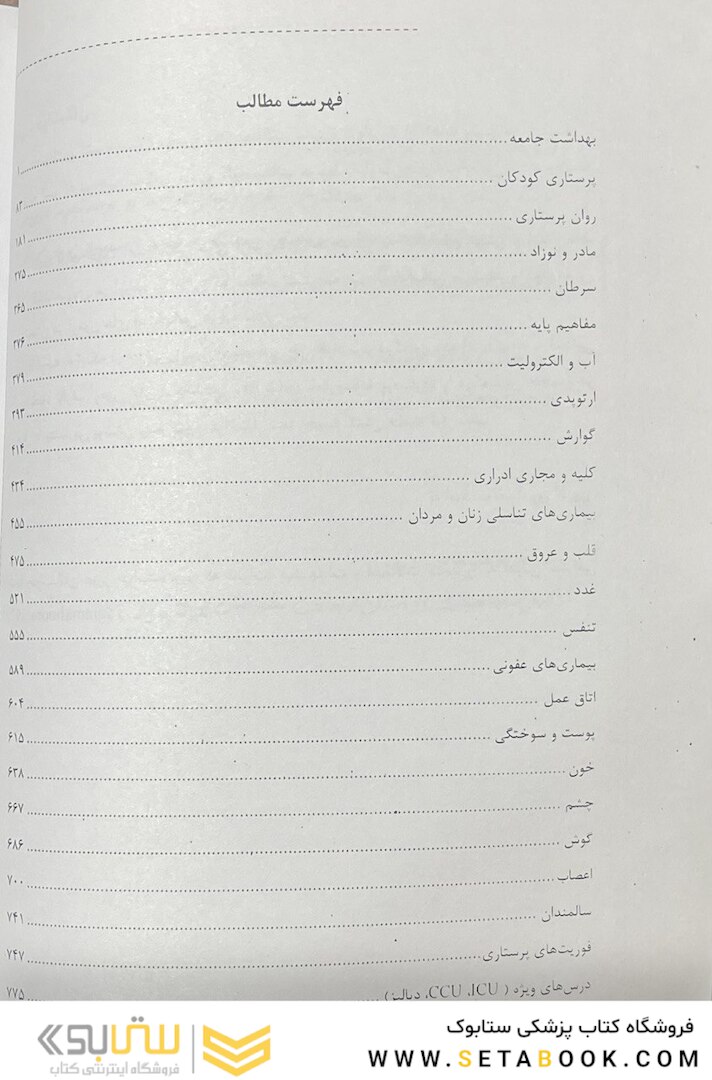 فهرست مطالب
بهداشت جامعه ........ ۱
پرستاری کودکان ........ ۸۲
روان پرستاری ........ ۱۸۱
مادر و نوزاد ........ ۲۷۵
سرطان ........ ۳۶۵
مفاهیم پایه ........ ۳۷۶
آب و الکترولیت ........ ۳۷۹
ارتوپدی ........ ۳۹۳
گوارش ........ ۴۱۴
کلیه و مجاری ادراری ........ ۴۳۴
بیماری‌های تناسلی زنان و مردان ........ ۴۵۵
قلب و عروق ........ ۴۷۵
غدد ........ ۵۲۱
تنفس ........ ۵۵۵
بیماری‌های عفونی ........ ۵۸۹
اتاق عمل ........ ۶۰۴
پوست و سوختگی ........ ۶۱۵
خون ........ ۶۳۸
چشم ........ ۶۶۷
گوش ........ ۶۸۶
اعصاب ........ ۷۰۰
سالمندان ........ ۷۴۱
فوریت‌های پرستاری ........ ۷۴۷
درس‌های ویژه ( CCU ،ICU، دیالیز) ........ ۷۷۵
فروشگاه کتاب پزشکی ستابوک
WWW.SETABOOK.COM
ستابوک
فروشگاه اینترنتی کتاب